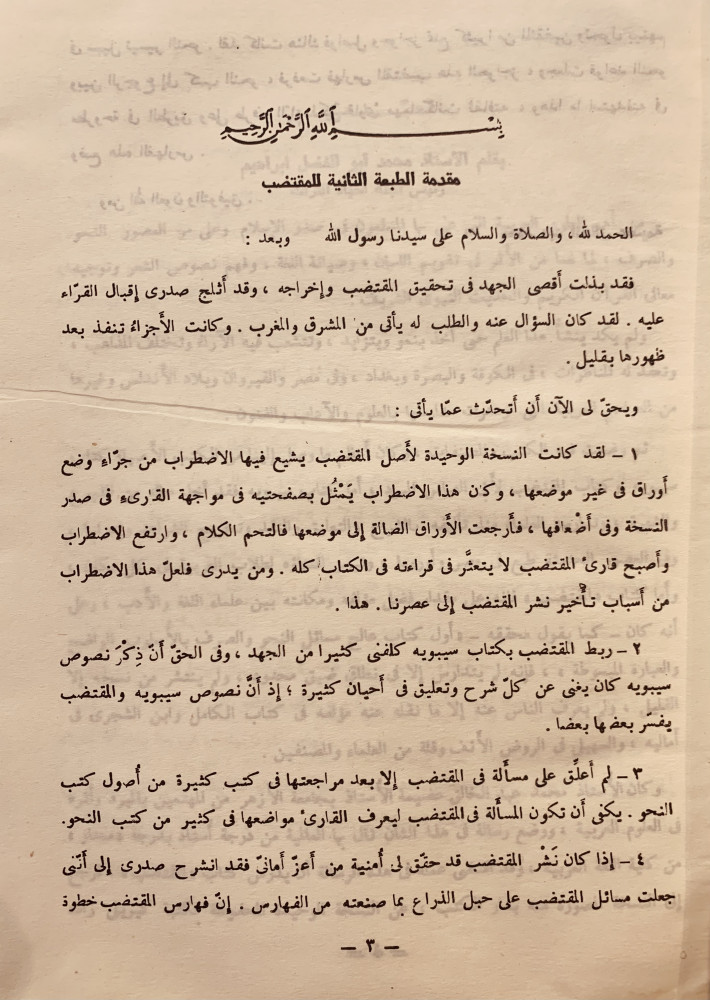 بسم الله الرحمن الرحيم
مقدمة الطبعة الثانية للمقتضب
الحمد لله ، والصلاة والسلام على سيدنا رسول الله وبعد :
فقد بذلت أقصى الجهد فى تحقيق المقتضب وإخراجه ، وقد أثلج صدرى إقبال القرّاء
عليه . لقد كان السؤال عنه والطلب له يأتى من المشرق والمغرب . وكانت الأجزاءُ تنفذ بعد
ظهورها بقليل .
ويحقّ لى الآن أن أتحدّث عمّا يأتى :
١ – لقد كانت النسخة الوحيدة لأصل المقتضب يشيع فيها الاضطراب من جرّاء وضع
أوراق فى غير موضعها ، وكان هذا الاضطراب يَمْثُل بصفحتيه فى مواجهة القارىء فى صدر
النسخة وفى أضْعافها ، فأرجعت الأوراق الضالة إلى موضعها فالتحم الكلام ، وارتفع الاضطراب
وأصبح قارئ المقتضب لا يتعثَّر فى قراءته فى الكتاب كله . ومن يدرى فلعلّ هذا الاضطراب
من أسباب تأْخير نشر المقتضب إلى عصرنا . هذا .
٢ – ربط المقتضب بكتاب سيبويه كلفنى كثيرا من الجهد ، وفى الحقّ أنّ ذِكْرَ نصوص
سيبويه كان يغنى عن كلّ شرح وتعليق فى أحيان كثيرة ؛ إذ أنَّ نصوص سيبويه والمقتضب
يفسّر بعضها بعضا .
٣ – لم أعلِّق على مسأَلة فى المقتضب إلا بعد مراجعتها فى كتب كثيرة من أُصول كتب
النحو . يكفى أن تكون المسأَلة فى المقتضب ليعرف القارئ مواضعها فى كثير من كتب النحو.
٤ – إذا كان نَشْر المقتضب قد حقّق لى أُمنية من أعزّ أمانىّ فقد انشرح صدرى إلى أنّنى
جعلت مسائل المقتضب على حبل الذراع بما صنعته من الفهارس . إنّ فهارس المقتضب خطوة
– ٣ –